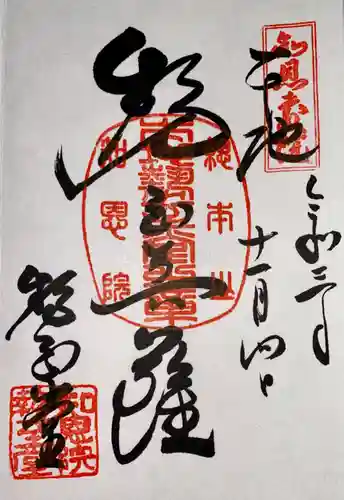 令和三年
十一月四日
本地
勢至菩薩
勢至堂
總本山
知恩院
知恩院
勢至堂